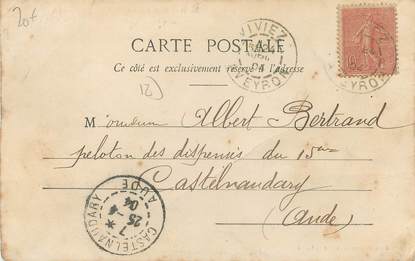 20f
CARTE POSTALE
Ce côté est exclusivement réservé à l'adresse
VIVIEZ
AVEYRON
12)
Monsieur Albert Bertrand
peloton des dispensés du 15ème
Castelnaudary
(Aude)
CASTELNAUDARY
AUDE
7
25-4
04